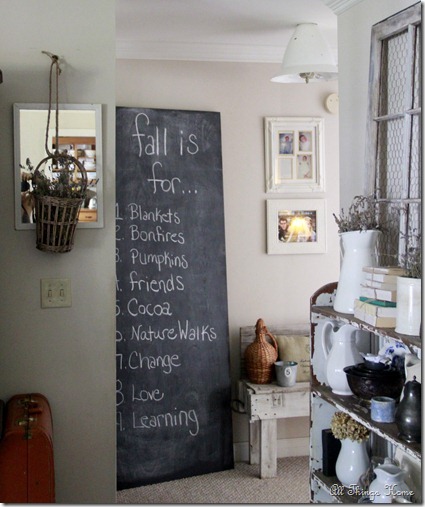 fall is
for...
1. Blankets
2. Bonfires
3. Pumpkins
4. friends
5. Cocoa
6. Nature Walks
7. Change
8. Love
9. Learning
All Things Home